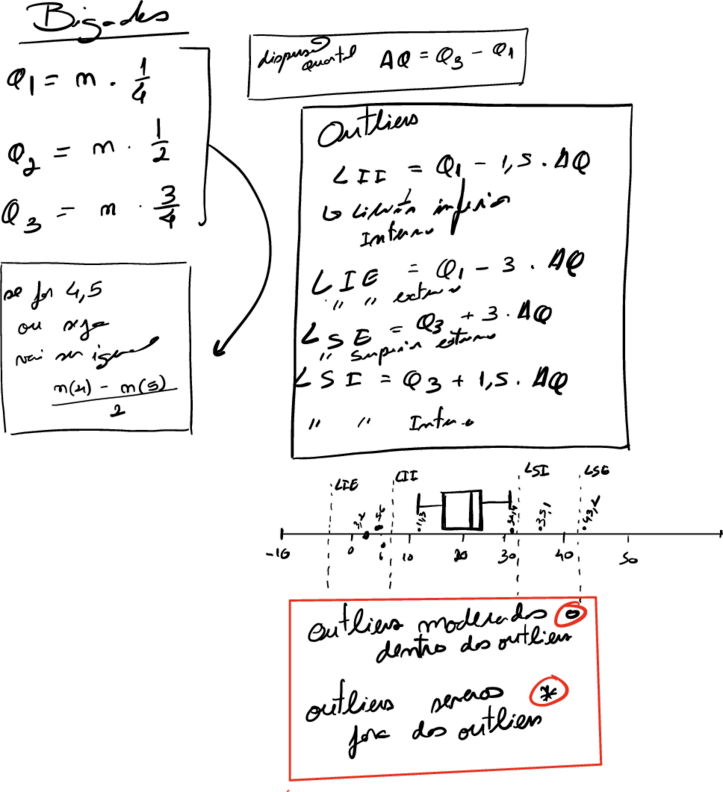 Bigodes
Q1 = n · 1/4
Q2 = n · 1/2
Q3 = n · 3/4
se for 4,5
ou seja
vai ser igual
n(4) - n(5)
2
dispersão
quartil
AQ = Q3 - Q1
Outliers
LII = Q1 - 1,5 · AQ
↳ Limite inferior
Interno
LIE = Q1 - 3 · AQ
" " externo
LSE = Q3 + 3 · AQ
" Superior externo
LSI = Q3 + 1,5 · AQ
" " Interno
LIE LII LSI LSE
-10 0 6 10 20 30 40 50
outliers moderados o
dentro dos outliers
outliers severos *
fora dos outliers